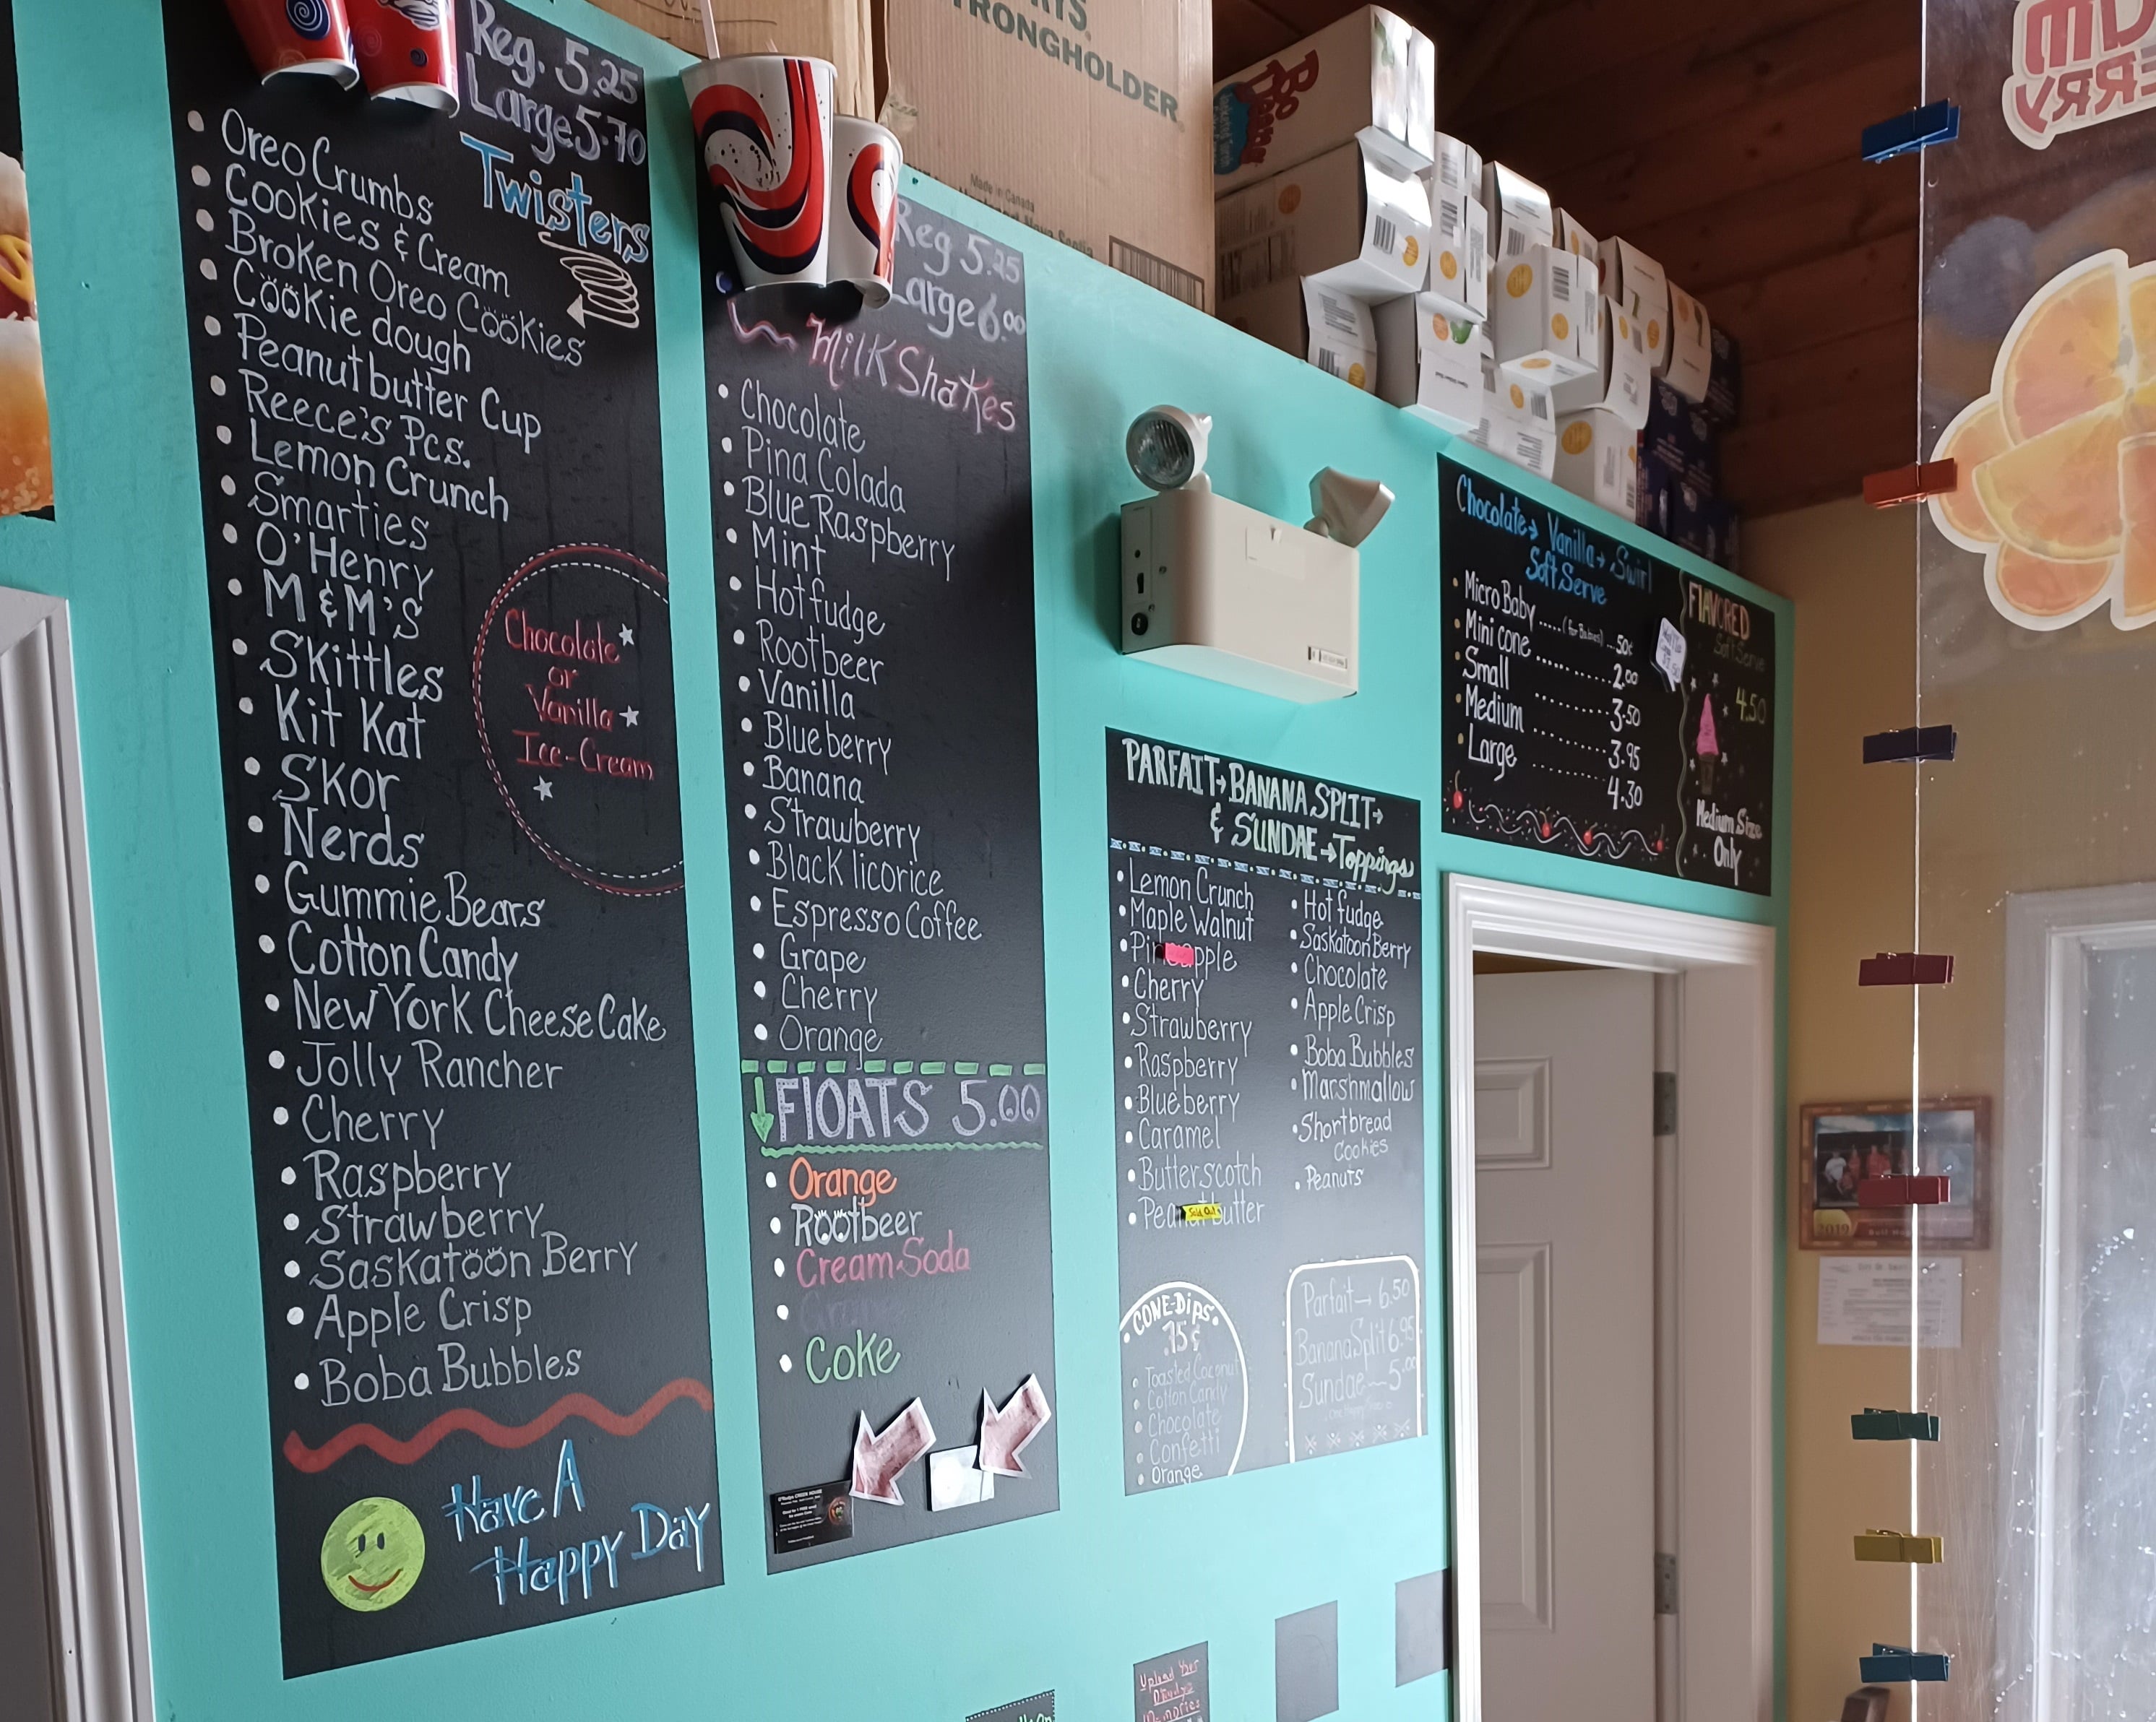 Reg. 5.25
Large 5.70
Twisters
Oreo Crumbs
Cookies & Cream
Broken Oreo Cookies
Cookie dough
Peanut butter Cup
Reece's Pcs.
Lemon Crunch
Smarties
O'Henry
M & M'S
Skittles
Kit Kat
Skor
Nerds
Gummie Bears
Cotton Candy
New York Cheese Cake
Jolly Rancher
Cherry
Raspberry
Strawberry
Saskatoon Berry
Apple Crisp
Boba Bubbles
Chocolate
or
Vanilla
Ice-Cream
Have A
Happy Day
Reg 5.25
Large 6.00
Milk Shakes
Chocolate
Pina Colada
Blue Raspberry
Mint
Hot fudge
Rootbeer
Vanilla
Blueberry
Banana
Strawberry
Black licorice
Espresso Coffee
Grape
Cherry
Orange
FlOATS 5.00
Orange
Rootbeer
Cream Soda
Grape
Coke
STRONGHOLDER
Made in Canada
PARFAIT→ BANANA SPLIT→
& SUNDAE → Toppings
Lemon Crunch
Maple Walnut
Pineapple
Cherry
Strawberry
Raspberry
Blueberry
Caramel
Butterscotch
Peanut butter
Sold Out
Hot fudge
Saskatoon Berry
Chocolate
Apple Crisp
Boba Bubbles
Marshmallow
Shortbread
Cookies
Peanuts
CONE-DiPS
.75¢
Toasted Coconut
Cotton Candy
Chocolate
Confetti
Orange
Parfait → 6.50
Banana Split 6.95
Sundae — 5.00
Chocolate → Vanilla → Swirl
Soft Serve
Micro Baby ..... (for Babies) ... 50¢
Mini cone .......... 2.00
Small .......... 3.50
Medium .......... 3.95
Large .......... 4.30
FlAVORED
Soft Serve
4.50
Medium Size
Only
2019
Upload Your